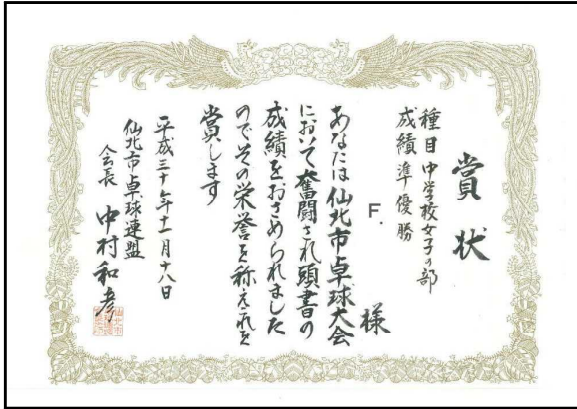 賞状
種目 中学校女子の部
成績 準優勝
F.
様
あなたは仙北市卓球大会
において奮闘され頭書の
成績をおさめられました
のでその栄誉を称えこれを
賞します
平成三十年十一月十八日
仙北市卓球連盟
会長 中村和彦